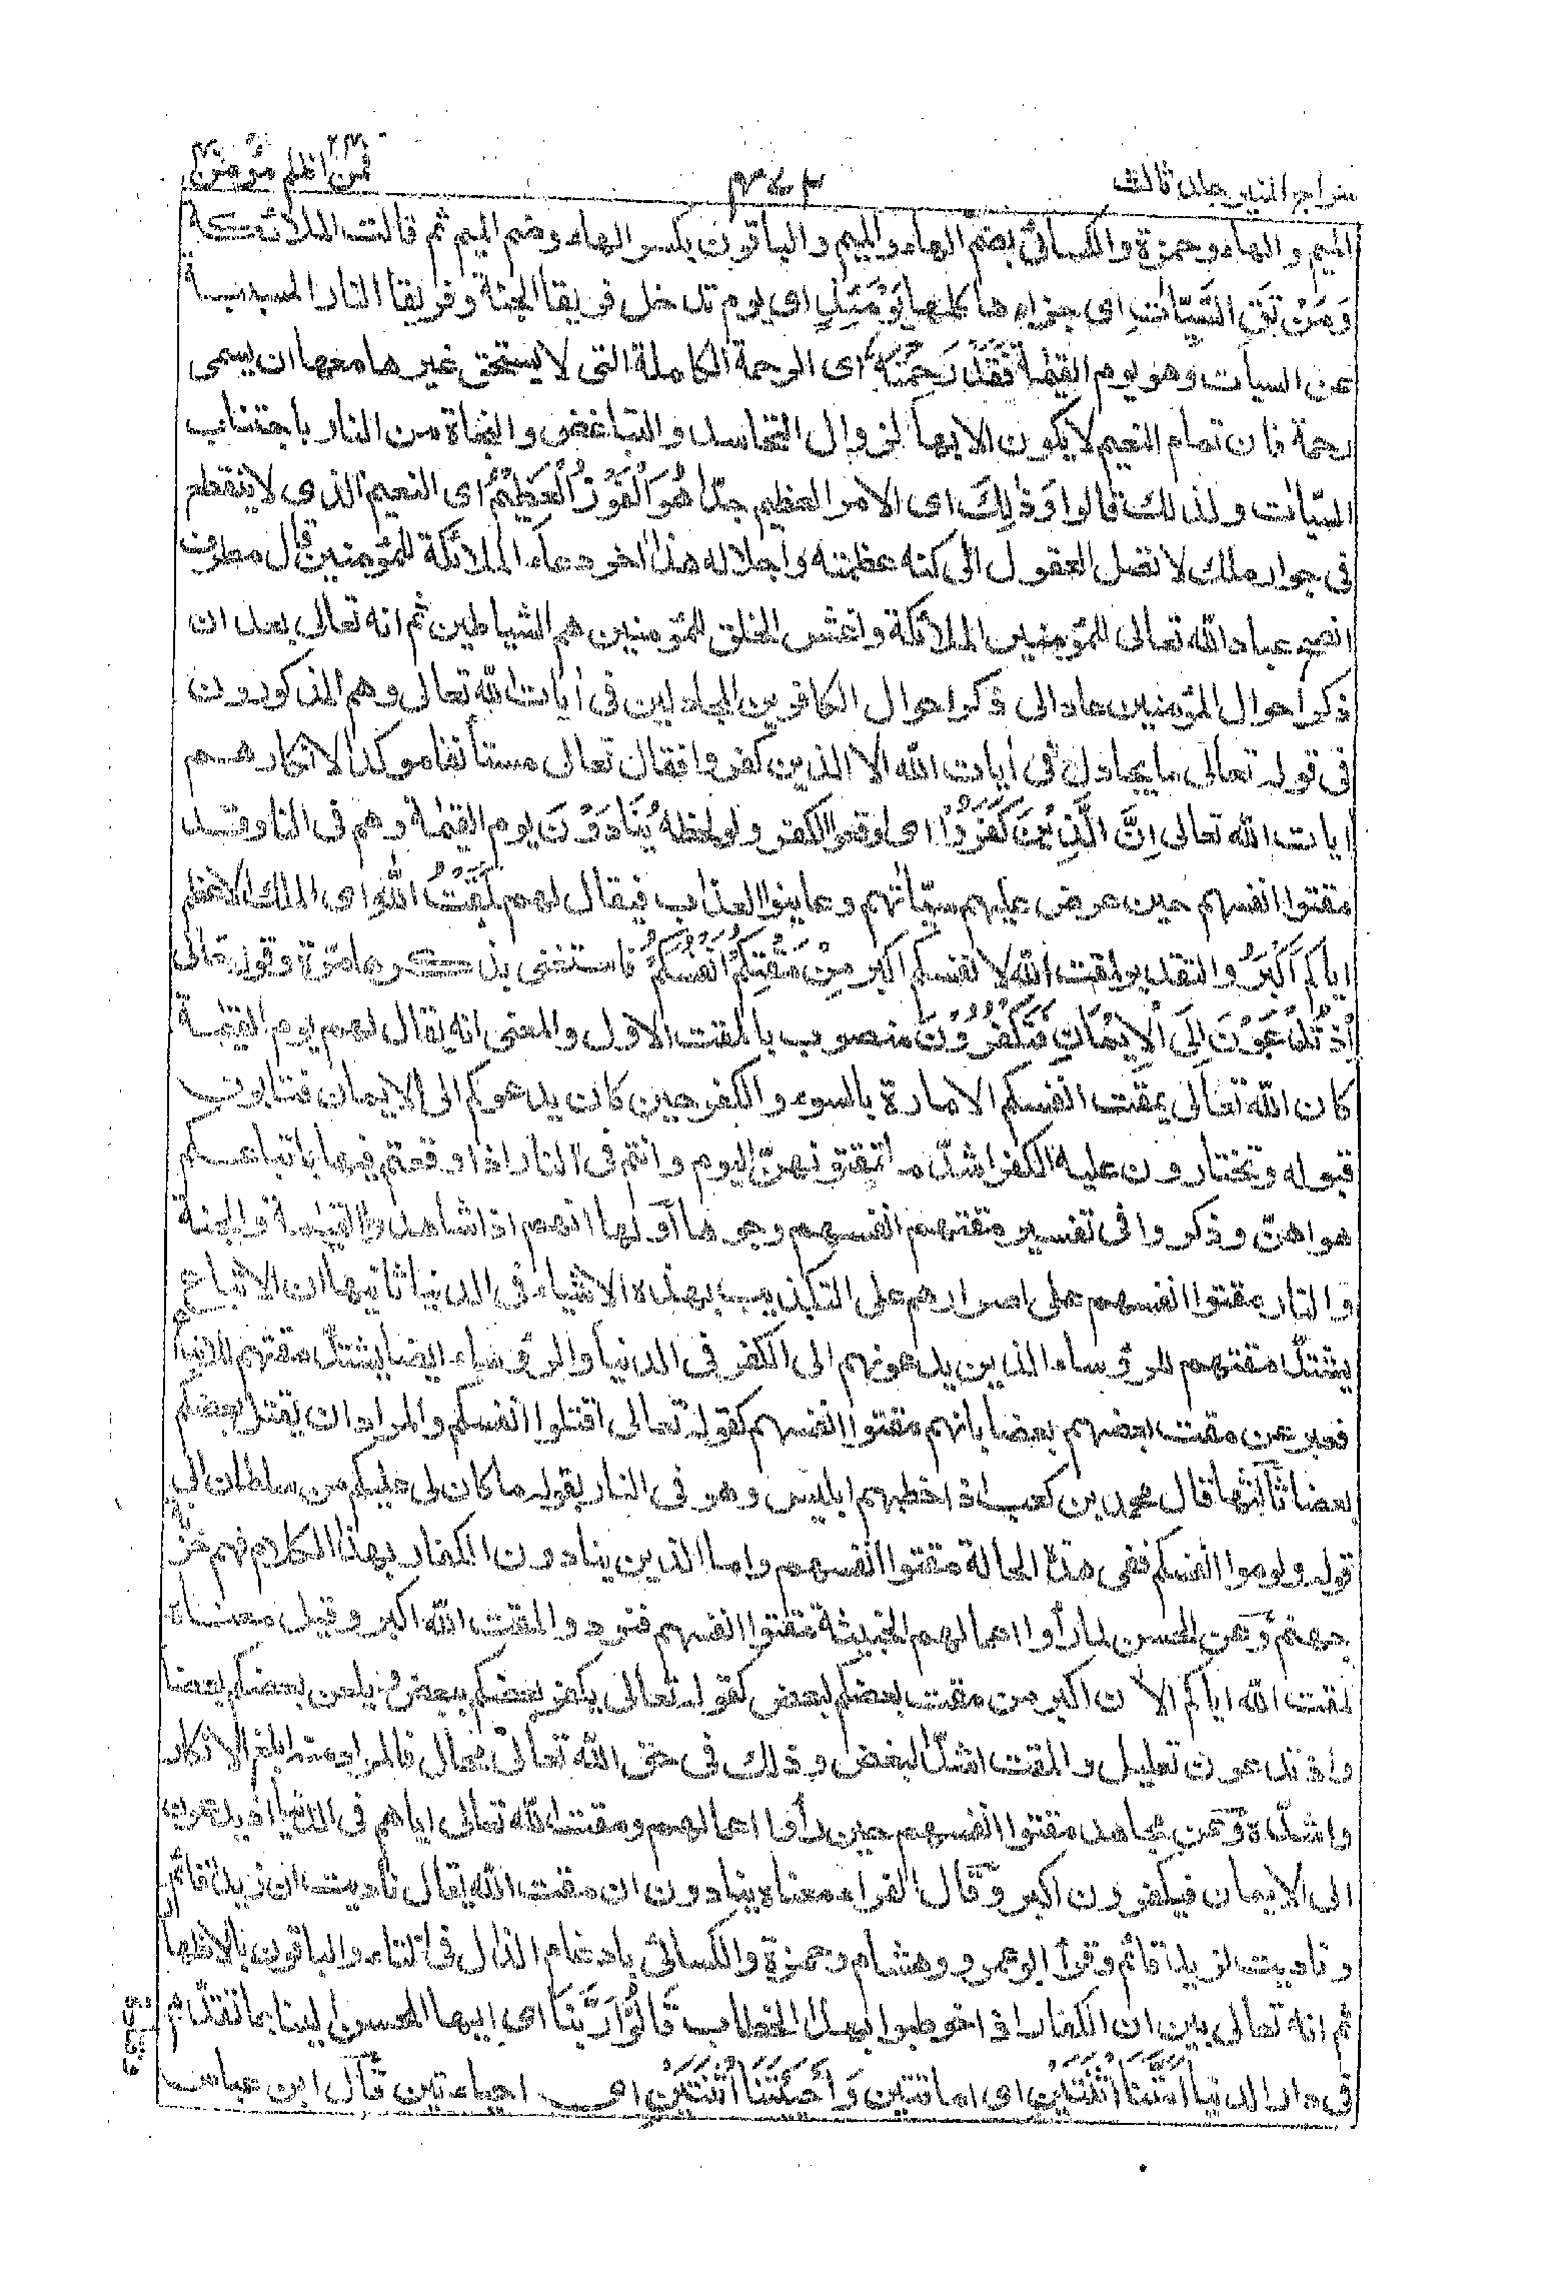 سراج المنير جلد ثالث
٤٧٢
فمن اظلم مؤمن
الميم والهاء وحمزة والكسائى بضم الهاء والميم والباقون بكسر الهاء وضم الميم ثم قالت الملائكة
وَمَنْ تَقِ السَّيِّاٰتِ اى جزاءها كلها يَوْمَئِذٍ اى يوم تدخل فريقا الجنة وفريقا النار المسببة
عن السيآت وهو يوم القيٰمة فَقَدْ رَحِمْتَهٗ اى الرحمة الكاملة التى لا يستحق غيرها معها ان يسمى
رحمة فان تمام النعيم لا يكون الا بها لزوال التحاسد والتباغض والنجاة من النار باجتناب
السيّاٰت ولذلك قالوا وَذٰلِكَ اى الامر العظيم جدّا هُوَ الْفَوْزُ الْعَظِيْمُ اى النعيم الذى لا ينقطع
فى جوار ملك لا تصل العقول الى كنه عظمته واجلاله هذا اٰخر دعاء الملائكة للمؤمنين قال مطرف
انصح عباد الله تعالى للمؤمنين الملائكة واغش الخلق للمؤمنين هم الشياطين ثم انه تعالى بعد ان
ذكر احوال المؤمنين عاد الى ذكر احوال الكافرين المجادلين فى اٰيات الله تعالى وهم المذكورون
فى قوله تعالى ما يجادل فى اٰيات الله الا الذين كفروا فقال تعالى مستأنفا موكدا لانكارهم
ايات الله تعالى اِنَّ الَّذِيْنَ كَفَرُوْا اى اوقعوا الكفر ولو لحظة يُنَادَوْنَ يوم القيٰمة وهم فى النار وقد
مقتوا انفسهم حين عرض عليهم سيّاٰتهم وعاينوا العذاب فيقال لهم لَمَقْتُ اللّٰهِ اى الملك الاعظم
اياكم اَكْبَرُ والتقدير لمقت الله لانفسكم اكبر مِنْ مَّقْتِكُمْ اَنْفُسَكُمْ فاستغنى بذكرها مرّة وقوله تعالى
اِذْ تُدْعَوْنَ اِلَى الْاِيْمَانِ فَتَكْفُرُوْنَ منصوب بالمقت الاول والمعنى انه يقال لهم يوم القيٰمة
كان الله تعالى يمقت انفسكم الامارة بالسوء والكفر حين كان يدعوكم الى الايمان فتابون
قبوله وتختارون عليه الكفر اشدّ مما تمقتونهنّ اليوم وانتم فى النار اذا وقعتم فيها باتباعكم
هواهنّ وذكروا فى تفسير مقتهم انفسهم وجوها اولها انهم اذا شاهدوا القيٰمة والجنة
والنار مقتوا انفسهم على اصرارهم على التكذيب بهذه الاشياء فى الدنيا ثانيها ان الاتباع
يشتدّ مقتهم للرؤساء الذين يدعونهم الى الكفر فى الدنيا والرؤساء ايضا يشتدّ مقتهم للاتباع
فعبر عن مقت بعضهم بعضا بانهم مقتوا انفسهم كقوله تعالى اقتلوا انفسكم والمراد ان يقتل بعضكم
بعضا ثالثها قال محمد بن كعب اذا خطبهم ابليس وهو فى النار بقوله ما كان لى عليكم من سلطان الى
قوله ولوموا انفسكم ففى هذه الحالة مقتوا انفسهم واما الذين ينادون الكفار بهذا الكلام فهم خزنة
جهنم وعن الحسن لما رأوا اعمالهم الخبيثة مقتوا انفسهم فنودوا لمقت الله اكبر وقيل معناه
لمقت الله اياكم الاٰن اكبر من مقت بعضكم لبعض كقوله تعالى يكفر بعضكم ببعض ويلعن بعضكم بعضا
واذ تدعون تعليل والمقت اشدّ البغض وذلك فى حق الله تعالى محال فالمراد منه ابلغ الانكار
واشدّه وعن مجاهد مقتوا انفسهم حين رأوا اعمالهم ومقت الله تعالى اياهم فى الدنيا اذ يدعون
الى الايمان فيكفرون اكبر وقال الفراء معناه ينادون ان مقت الله يقال ناديت ان زيدا قائم
وناديت لزيد قائم وقرأ ابو عمرو وهشام وحمزة والكسائى بادغام الذال فى التاء والباقون بالاظهار
ثم انه تعالى بين ان الكفار اذا خوطبوا بهذا الخطاب قَالُوْا رَبَّنَا اى ايها المحسن الينا بما تقدّم
فى دار الدنيا اَمَتَّنَا اثْنَتَيْنِ اى اماتتين وَاَحْيَيْتَنَا اثْنَتَيْنِ اى احياءتين قال ابن عباس